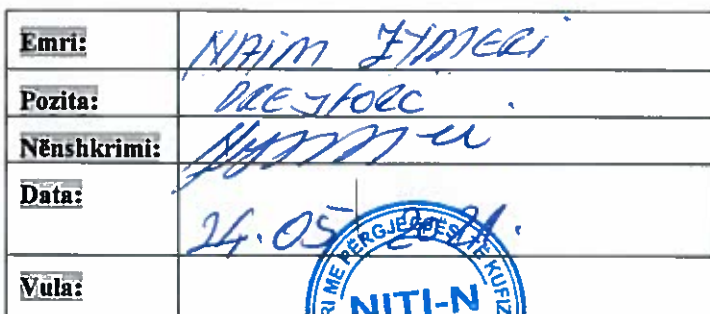 Emri: NAIM ZYMERI
Pozita: DREJTORC
Nënshkrimi:
Data: 24.05
Vula:
RI ME PËRGJEGJËSI TË KUFIZ
NITI-N